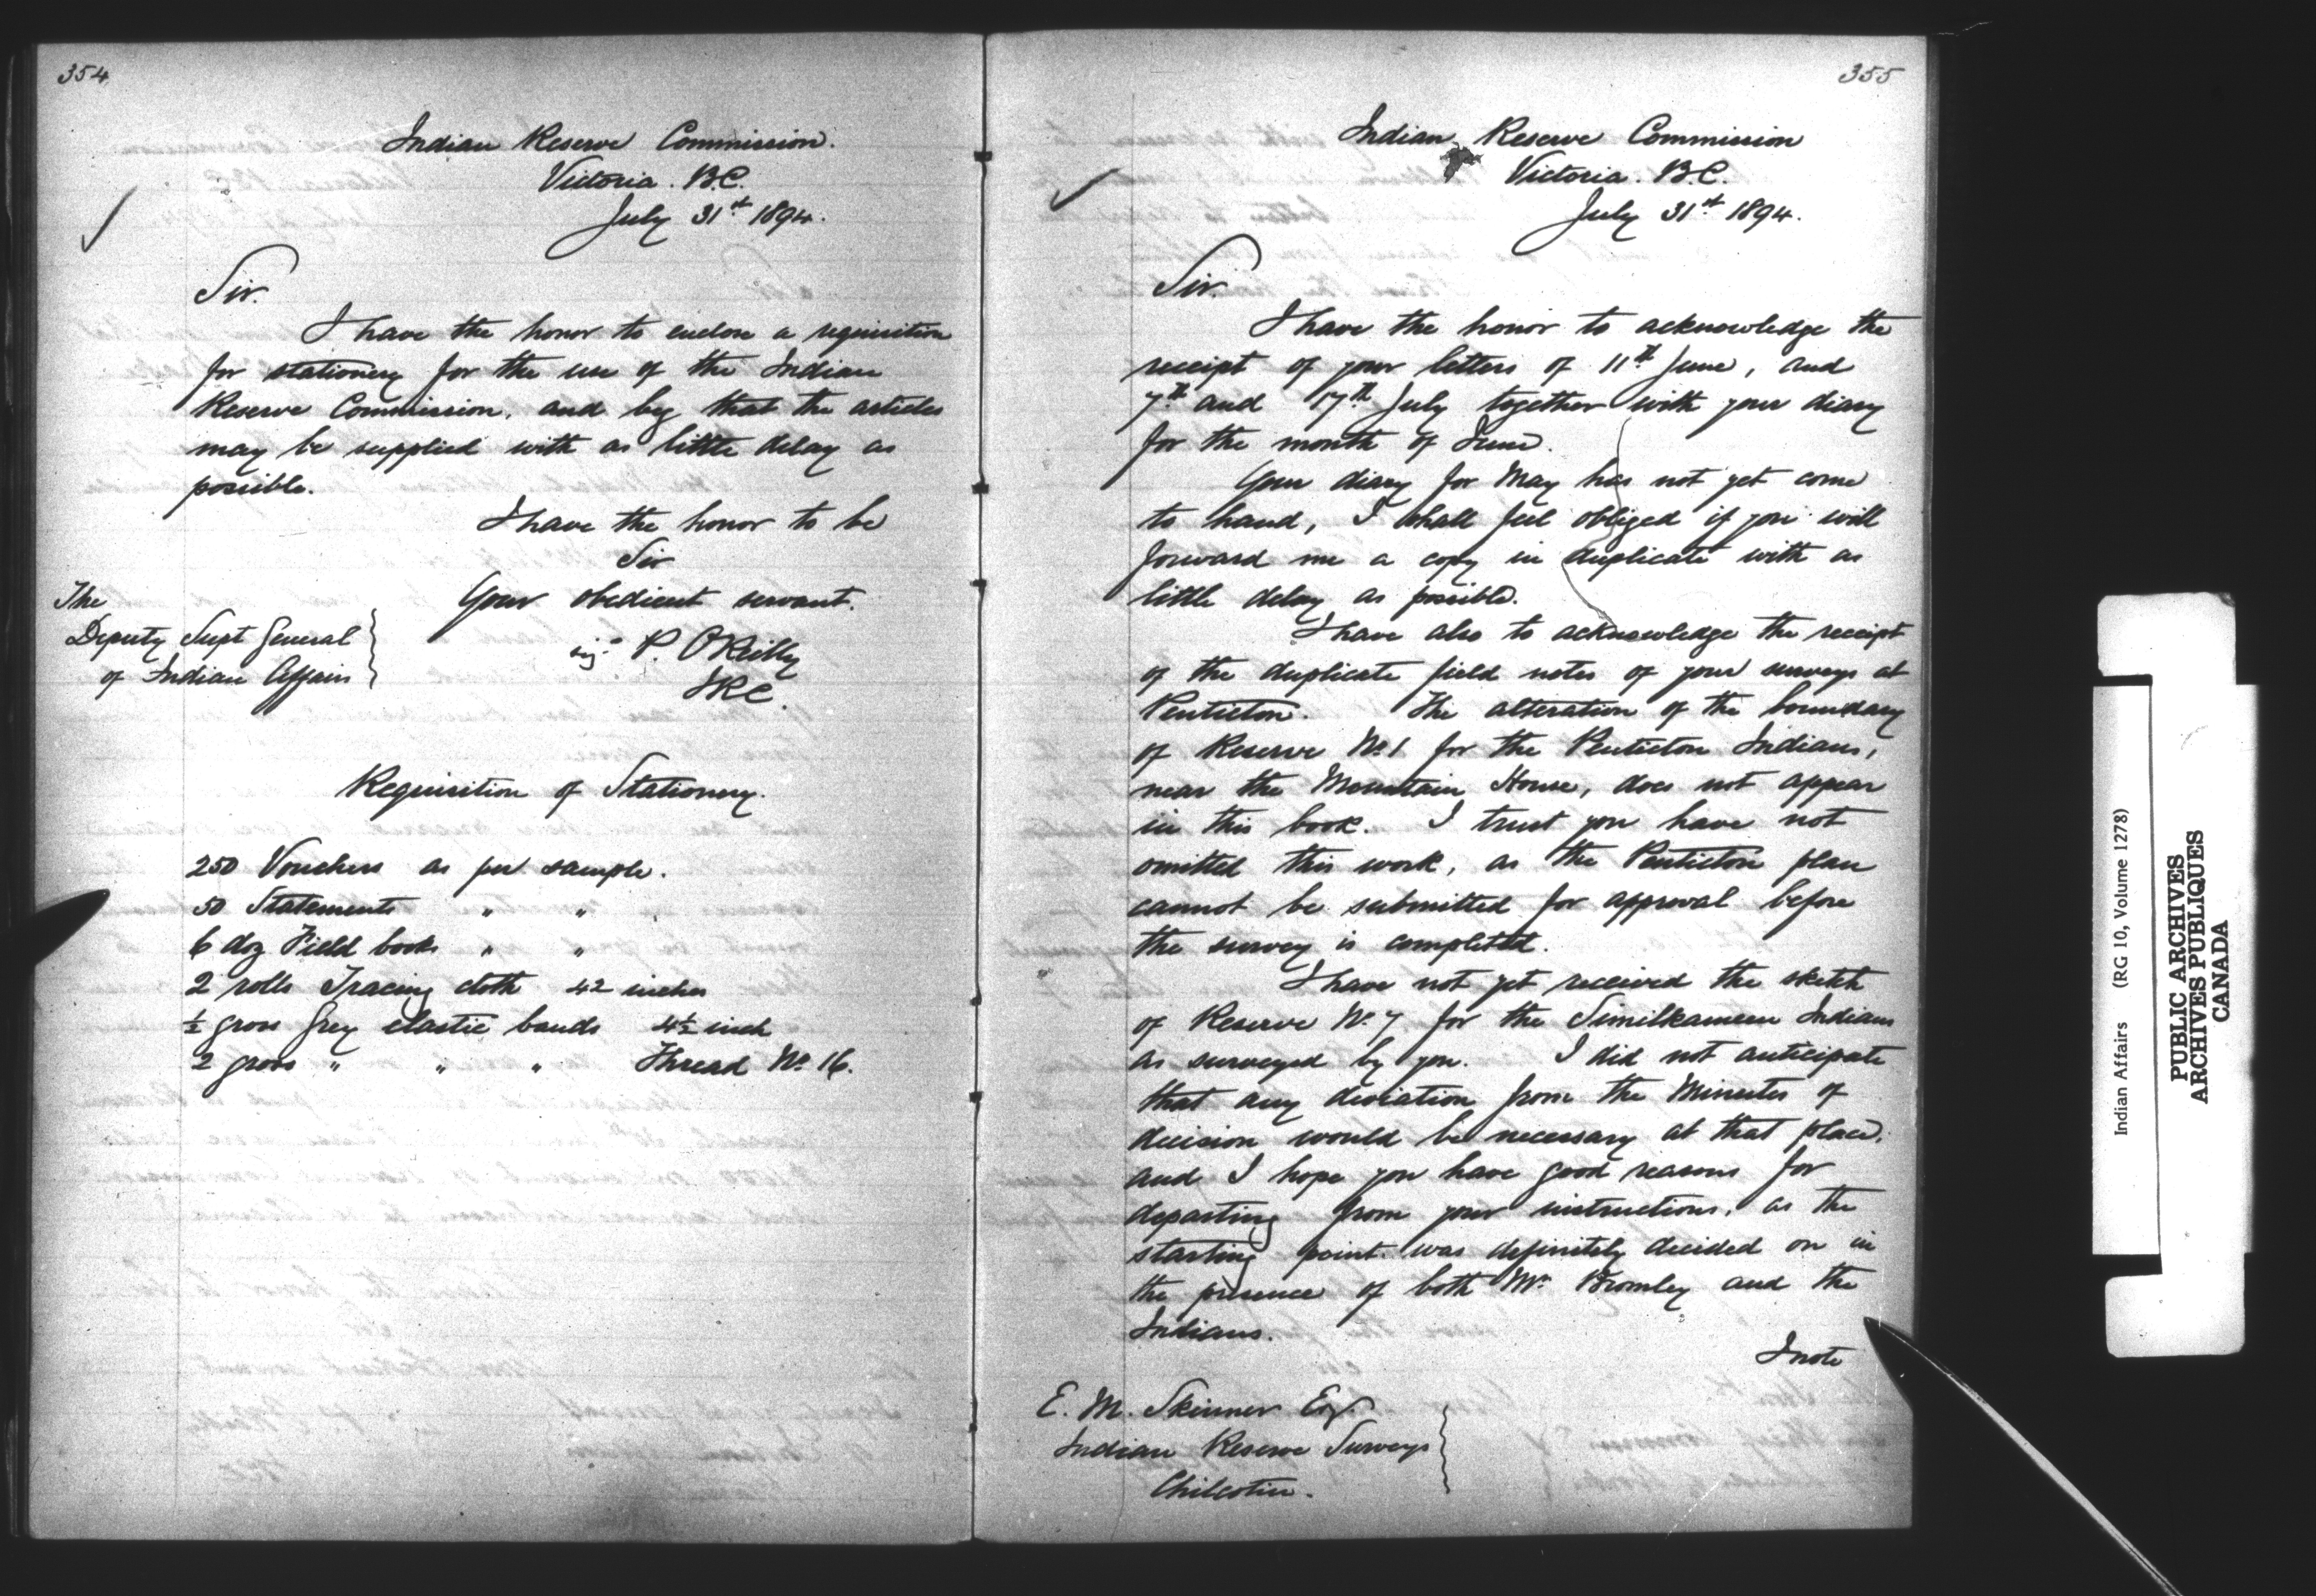 354
Indian Reserve Commission.
Victoria. B.C.
July 31st 1894.
Sir.
I have the honor to enclose a requisition
for stationery for the use of the Indian
Reserve Commission, and beg that the articles
may be supplied with as little delay as
possible.
I have the honor to be
Sir
Your obedient servant.
sigd P. O'Reilly
IRC.
The
Deputy Supt General
of Indian Affairs
Requisition of Stationery.
250 Vouchers as per sample.
50 Statements " "
6 doz Field books " "
2 rolls Tracing cloth 42 inches
½ gross Grey elastic bands 4½ inch
2 gross " " " Thread No 16.
355
Indian Reserve Commission
Victoria. B.C.
July 31st 1894.
Sir.
I have the honor to acknowledge the
receipt of your letters of 11th June, and
7th and 17th July together with your diary
for the month of June.
Your diary for May has not yet come
to hand, I shall feel obliged if you will
forward me a copy in duplicate with as
little delay as possible.
I have also to acknowledge the receipt
of the duplicate field notes of your surveys at
Penticton. The alteration of the boundary
of Reserve No 1 for the Penticton Indians,
near the Mountain House, does not appear
in this book. I trust you have not
omitted this work, as the Penticton plan
cannot be submitted for approval before
the survey is completed.
I have not yet received the sketch
of Reserve No 7 for the Similkameen Indians
as surveyed by you. I did not anticipate
that any deviation from the Minutes of
decision would be necessary at that place,
and I hope you have good reasons for
departing from your instructions, as the
starting point was definitely decided on in
the presence of both Mr Bromley and the
Indians.
I note
E. M. Skinner Esq.
Indian Reserve Surveys
Chilcotin.
Indian Affairs (RG 10, Volume 1278)
PUBLIC ARCHIVES
ARCHIVES PUBLIQUES
CANADA